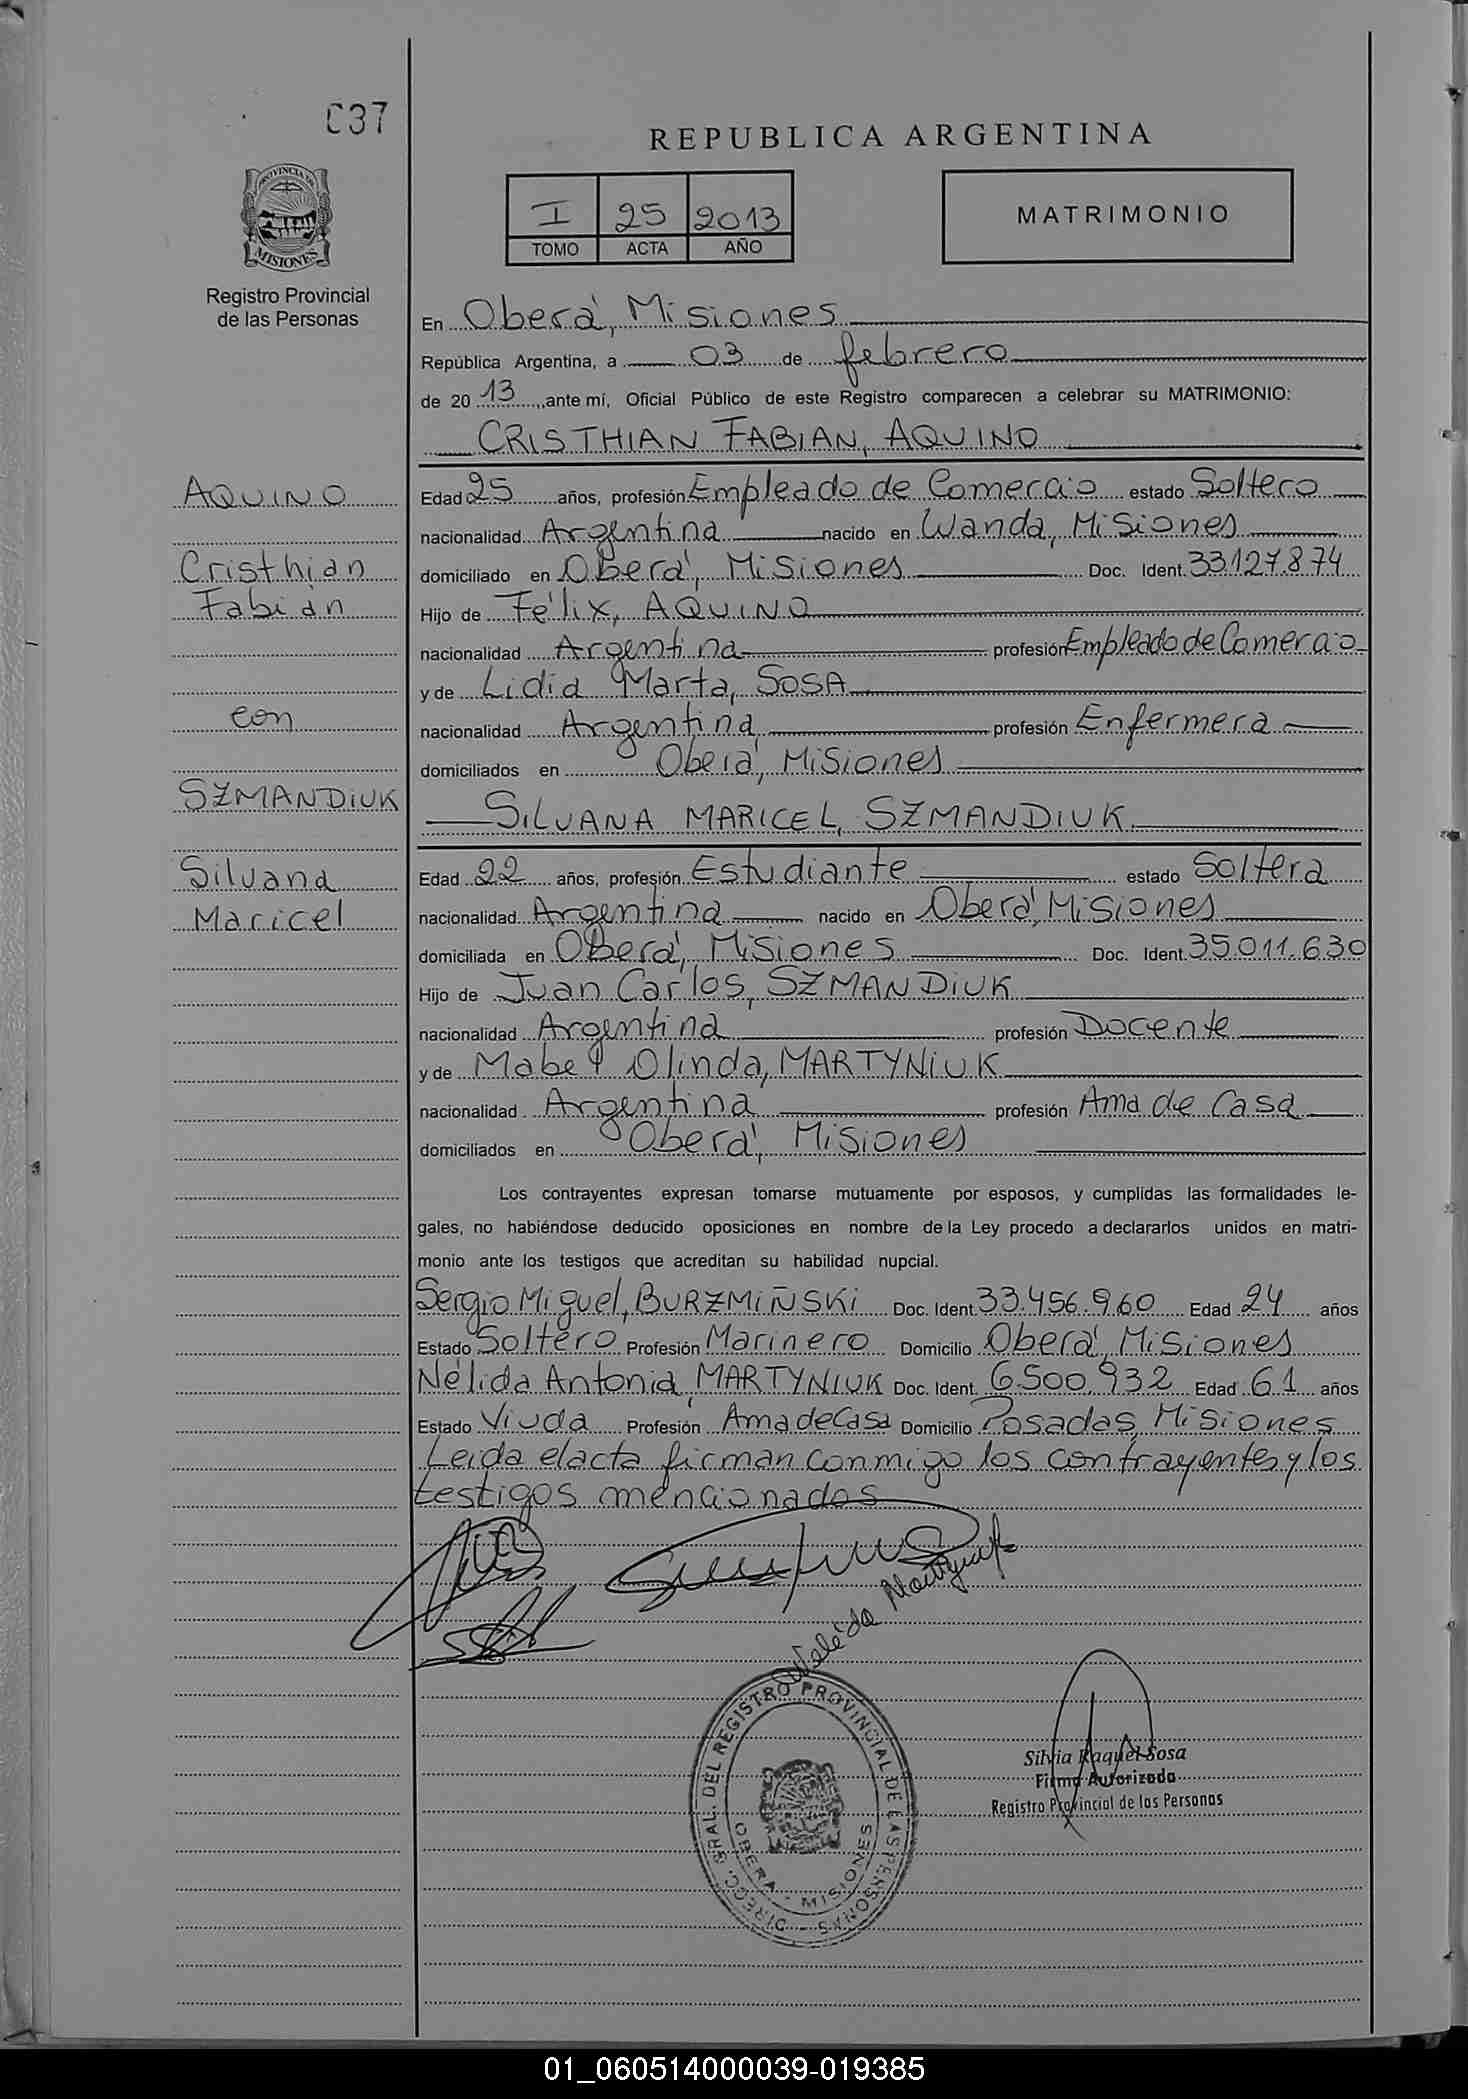 037
REPUBLICA ARGENTINA
PROVINCIA DE
MISIONES
Registro Provincial
de las Personas
I 25 2013
TOMO ACTA AÑO
MATRIMONIO
En Oberá, Misiones
República Argentina, a 03 de febrero
de 20 13 ante mí, Oficial Público de este Registro comparecen a celebrar su MATRIMONIO:
CRISTHIAN FABIAN, AQUINO
AQUINO
Cristhian
Fabián
con
SZMANDIUK
Silvana
Maricel
Edad 25 años, profesión Empleado de Comercio estado Soltero
nacionalidad Argentina nacido en Wanda, Misiones
domiciliado en Oberá, Misiones Doc. Ident. 33.127.874
Hijo de Félix, AQUINO
nacionalidad Argentina profesión Empleado de Comercio
y de Lidia Marta, SOSA
nacionalidad Argentina profesión Enfermera
domiciliados en Oberá, Misiones
SILVANA MARICEL, SZMANDIUK
Edad 22 años, profesión Estudiante estado Soltera
nacionalidad Argentina nacido en Oberá, Misiones
domiciliada en Oberá, Misiones Doc. Ident. 35.011.630
Hijo de Juan Carlos, SZMANDIUK
nacionalidad Argentina profesión Docente
y de Mabel Olinda, MARTYNIUK
nacionalidad Argentina profesión Ama de Casa
domiciliados en Oberá, Misiones
Los contrayentes expresan tomarse mutuamente por esposos, y cumplidas las formalidades le-
gales, no habiéndose deducido oposiciones en nombre de la Ley procedo a declararlos unidos en matri-
monio ante los testigos que acreditan su habilidad nupcial.
Sergio Miguel, BURZMIÑSKI Doc. Ident. 33.456.960 Edad 24 años
Estado Soltero Profesión Marinero Domicilio Oberá, Misiones
Nélida Antonia, MARTYNIUK Doc. Ident. 6.500.932 Edad 61 años
Estado Viuda Profesión Ama de Casa Domicilio Posadas, Misiones
Leida el acta firman conmigo los contrayentes y los
testigos mencionados
Nelida Martyniuk
DIRECC. GRAL. DEL REGISTRO PROVINCIAL DE LAS PERSONAS
OBERA - MISIONES
Silvia Raquel Sosa
Firma Autorizada
Registro Provincial de las Personas
01_060514000039-019385